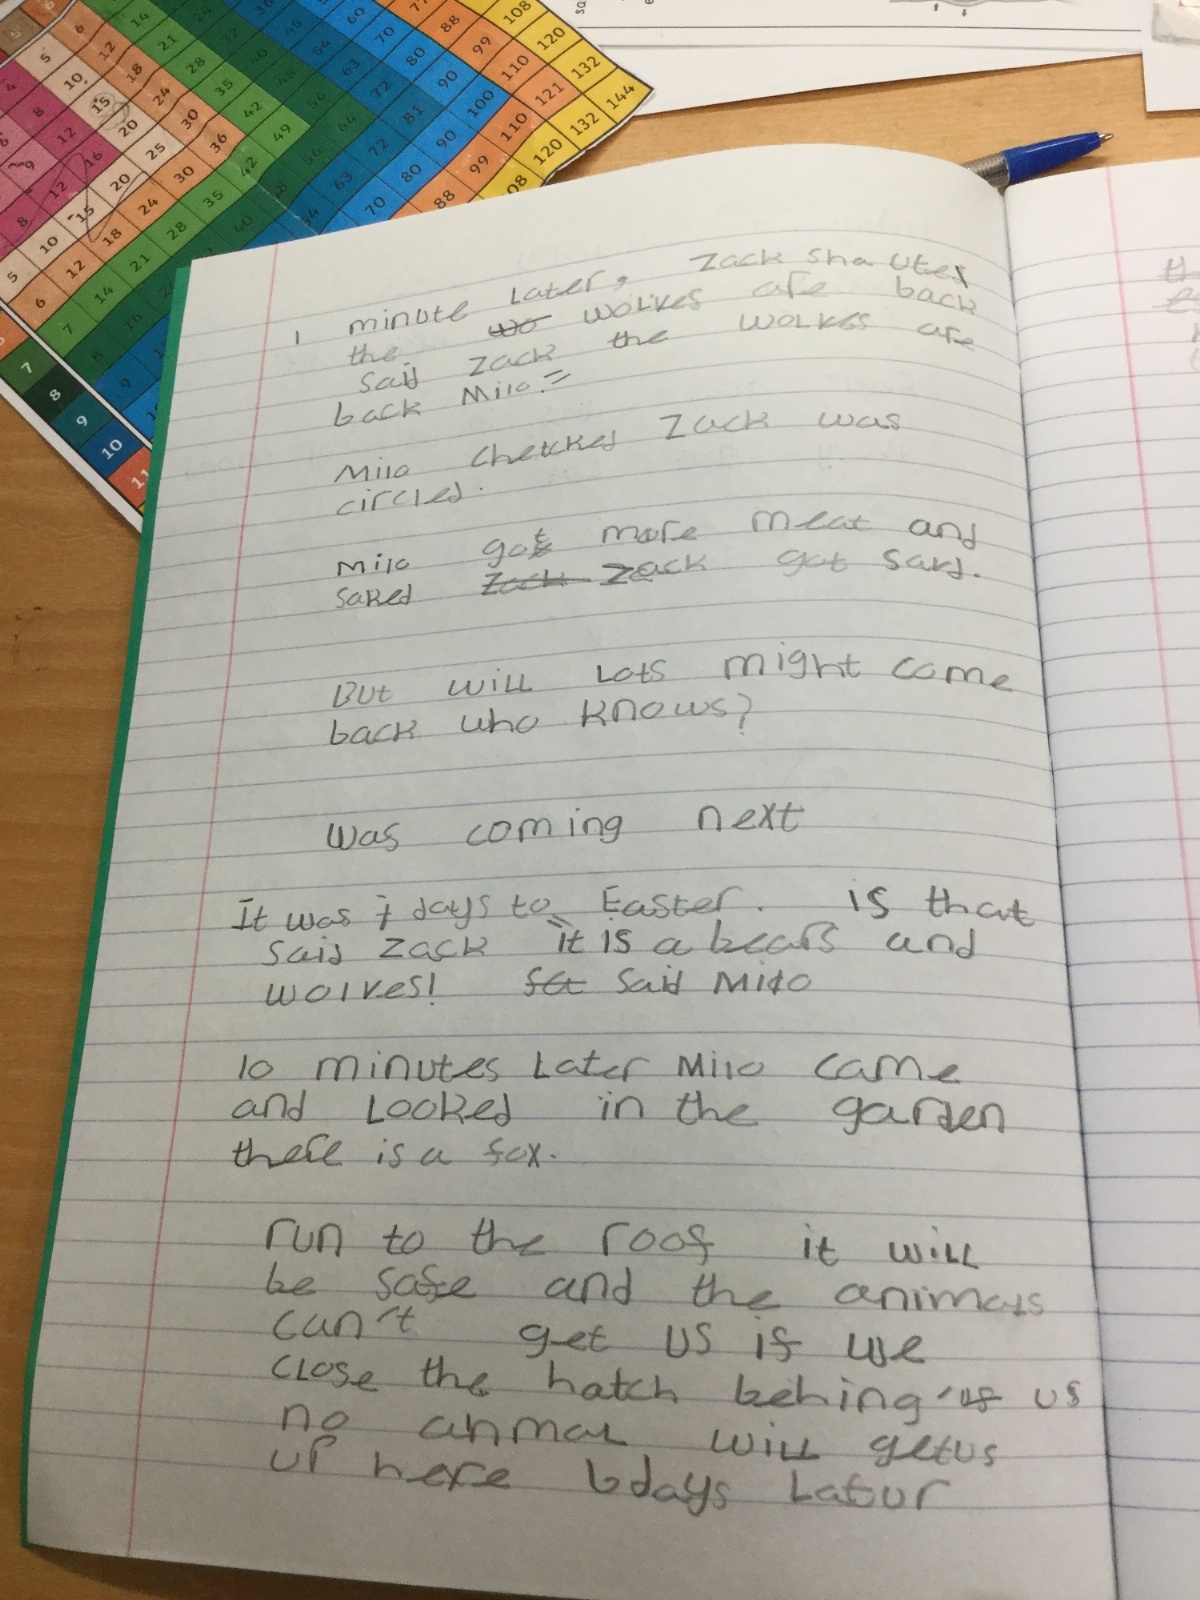 1 minute Later, Zack shauted
the wo wolves are back
said Zack the wolves are
back Milo.
Milo chetcked Zack was
circled.
Milo got more meat and
saved Zack Zack got sard.
But will Lots might come
back who knows?
was coming next
It was 7 days to Easter. is that
said Zack it is a bears and
wolves! said Milo
10 minutes Later Milo came
and Looked in the garden
there is a fox.
run to the roof it will
be safe and the animals
can't get us if we
close the hatch behing us
no anmal will getus
up here 6days Latur